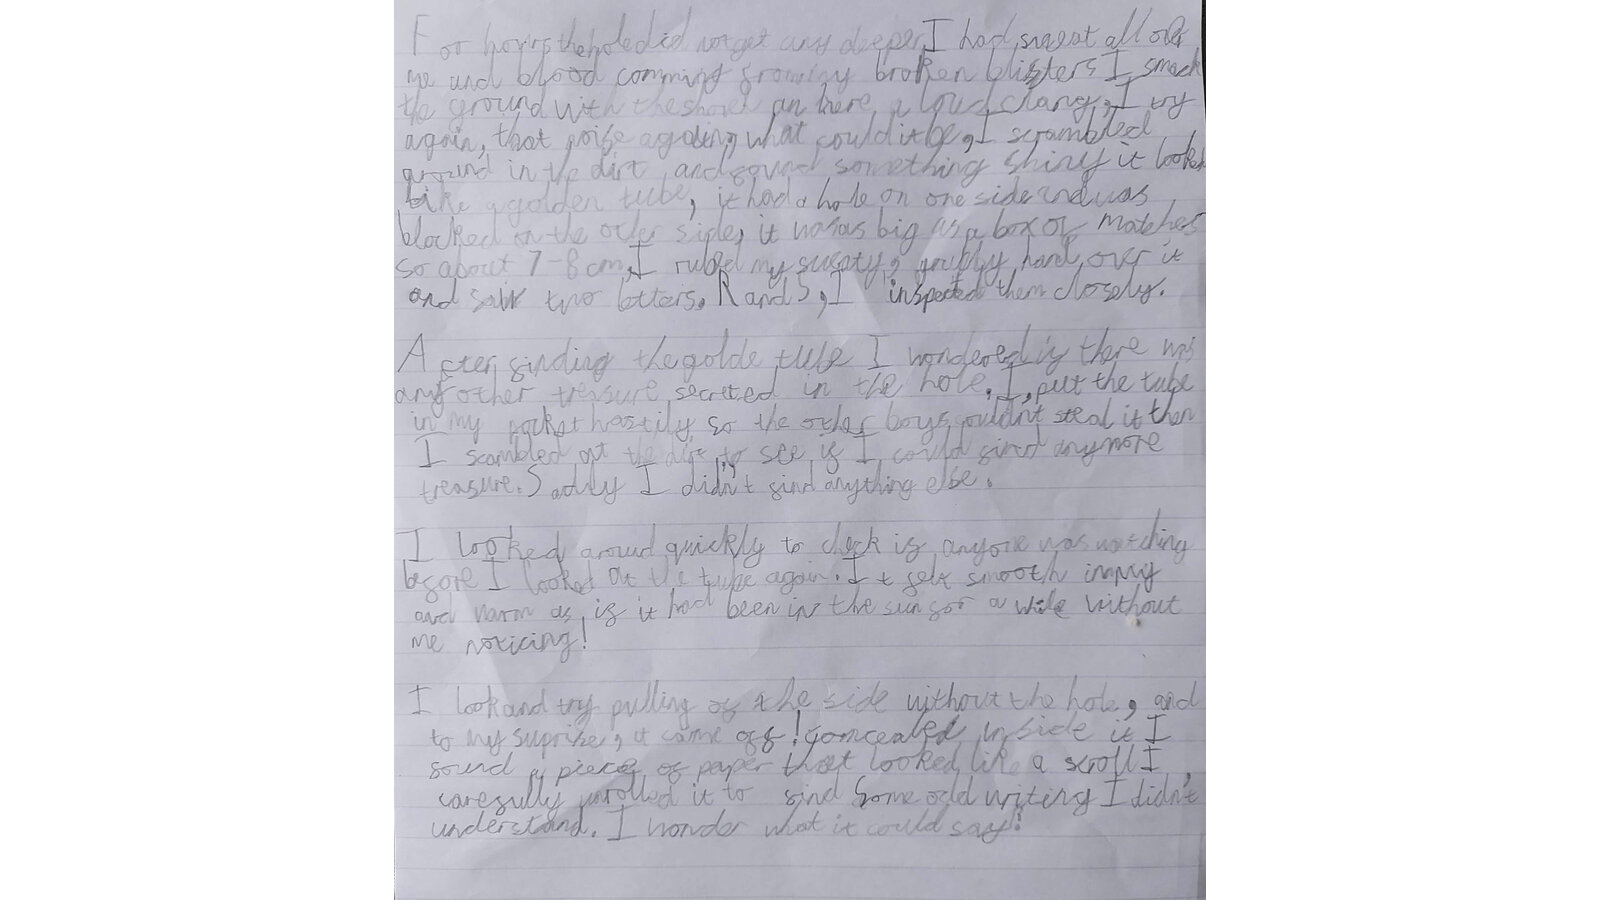 For hours the hole did not get any deeper, I had sweat all over
me and blood comming from my broken blisters I smack
the ground with the shovel an here a loud clang, I try
again, that noise again, what could it be, I scrambled
around in the dirt and found something shiny it looked
like a golden tube, it had a hole on one side and was
blocked on the other side, it was as big as a box of matches
so about 7-8 cm, I rubed my sweaty, grubby hand over it
and saw two letters. R and S, I inspected them closely.
After finding the golde tube I wondered if there was
any other treasure secreted in the hole. I put the tube
in my pocket hastily so the other boys couldn't steal it then
I scambled at the dirt to see if I could find anymore
treasure. Sadly I didn't find anything else.
I looked around quickly to check if anyone was watching
before I looked at the tube again. It felt smooth
and warm as if it had been in the sun for a while without
me noticing!
I look and try pulling of the side without the hole, and
to my suprise, it came off! concealed inside it I
found a piece of paper that looked like a scroll I
carefully unrolled it to find some odd writing I didn't
understand. I wonder what it could say?